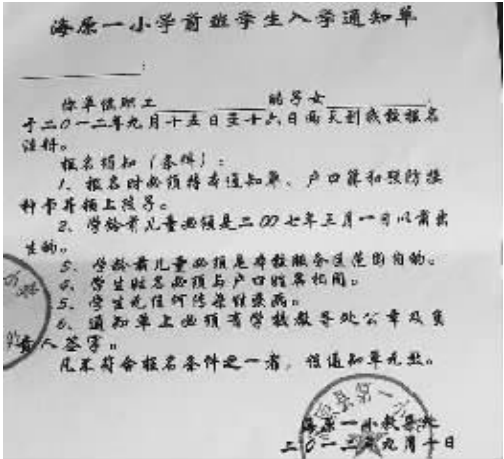 海原一小学前班学生入学通知单
:
你单位职工 的子女
于二〇一二年九月十五日至十六日两天到我校报名
注册。
报名须知（条件）：
1、报名时必须持本通知单、户口簿和预防接
种卡并领上孩子。
2、学龄前儿童必须是二〇〇七年三月一日以前出
生的。
3、学龄前儿童必须是本校服务区范围内的。
4、学生姓名必须与户口姓名相同。
5、学生无任何传染性疾病。
6、通知单上必须有学校教导处公章及负
责人签字。
凡不符合报名条件之一者，该通知单无效。
原县第一小
海原一小教导处
二〇一二年九月十日